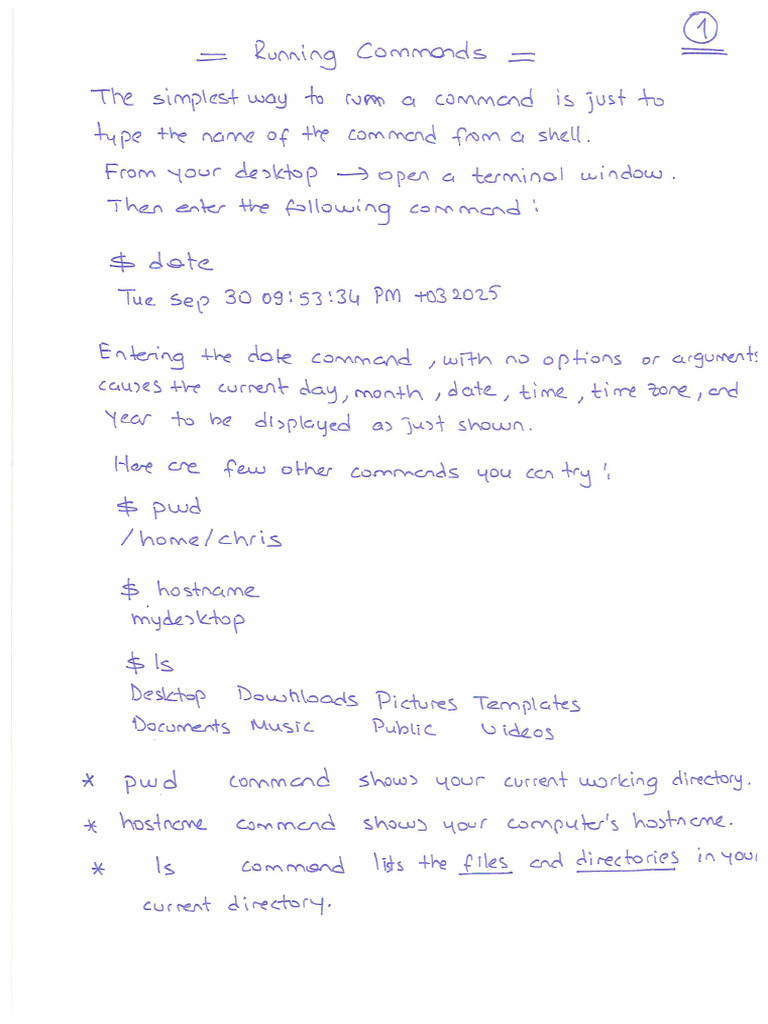 1
= Running Commands =
The simplest way to run a command is just to
type the name of the command from a shell.
From your desktop → open a terminal window.
Then enter the following command:
$ date
Tue Sep 30 09:53:34 PM +03 2025
Entering the date command, with no options or arguments
causes the current day, month, date, time, time zone, and
year to be displayed as just shown.
Here are few other commands you can try:
$ pwd
/home/chris
$ hostname
mydesktop
$ ls
Desktop Downloads Pictures Templates
Documents Music Public Videos
* pwd command shows your current working directory.
* hostname command shows your computer's hostname.
* ls command lists the files and directories in your
current directory.